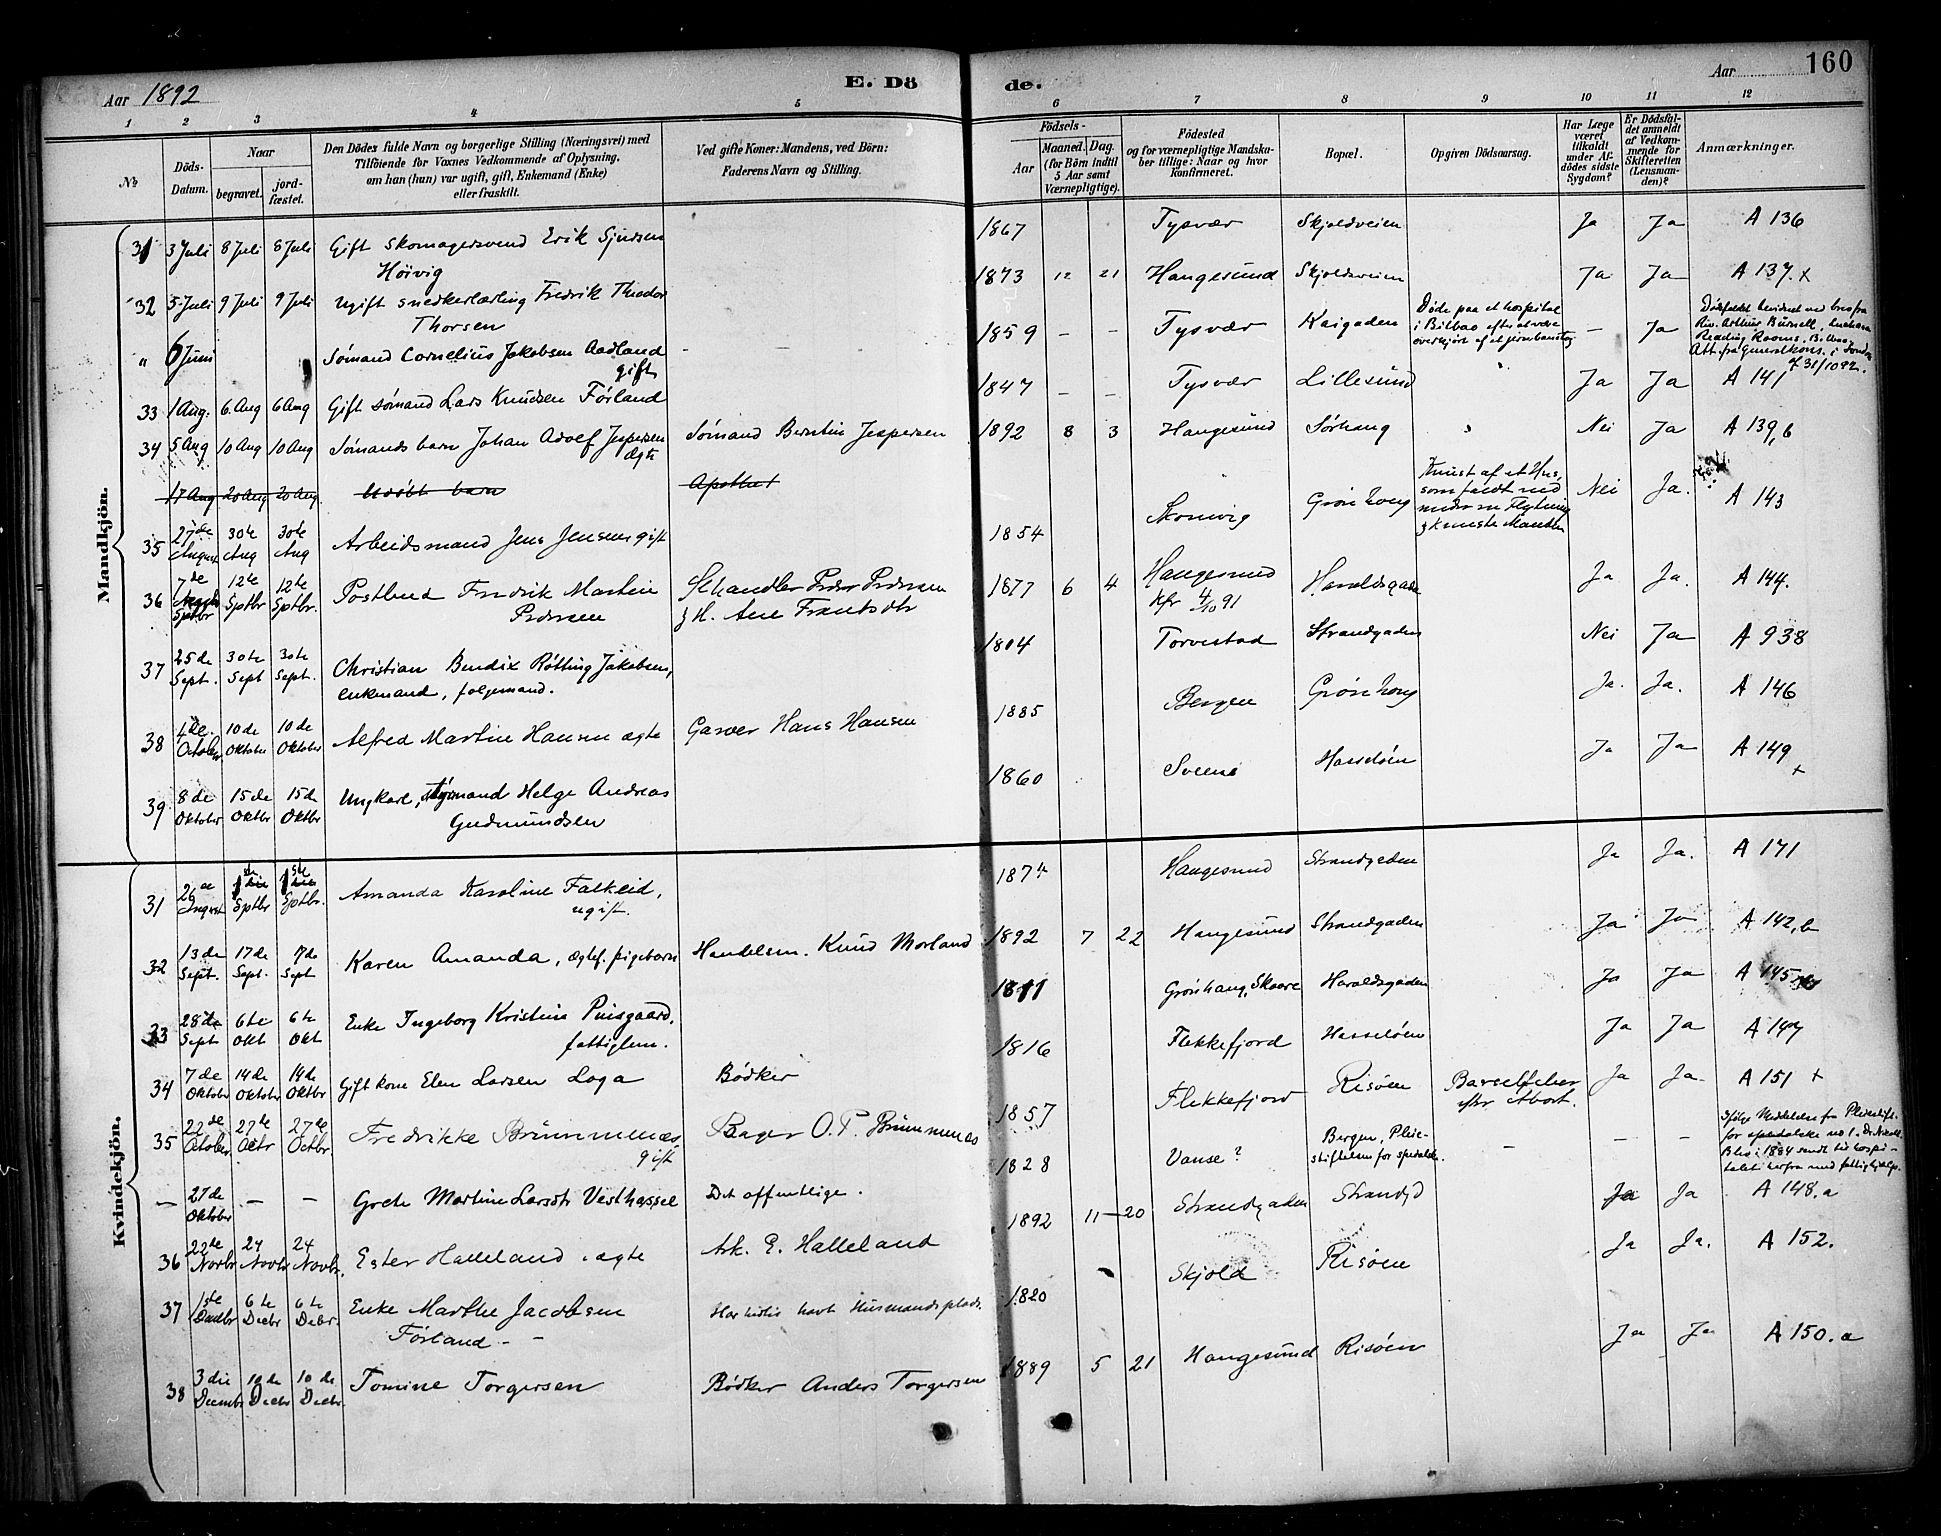 Aar 1892 E. Dö de. Aar 160
1 2 3 4 5 6 7 8 9 10 11 12
№ Döds-Datum. Naar begravet. jordfæstet.
Den Dödes fulde Navn og borgerlige Stilling (Næringsvei) med
Tilföiende for Voxnes Vedkommende af Oplysning,
om han (hun) var ugift, gift, Enkemand (Enke)
eller fraskilt.
Ved gifte Koner: Mandens, ved Börn:
Faderens Navn og Stilling.
Födsels-
Aar Maaned. Dag.
(for Börn indtil
5 Aar samt
Værnepligtige).
Födested
og for værnepligtige Mandskaber tillige: Naar og hvor
konfirmeret.
Bopæl.
Opgiven Dödsaarsag.
Har Læge
været
tilkaldt
under Afdödes sidste
Sygdom?
Er Dödsfaldet anmeldt
af Vedkommende for
Skifteretten
(Lensmanden)?
Anmærkninger.
Mandkjön.
31 3 Juli 8 Juli 8 Juli Gift skomagersvend Erik Sjursen 1867 Tysvær Skjoldveien Ja Ja A 136
Höivig
32 5 Juli 9 Juli 9 Juli Ugift snedkerlærling Fredrik Theodor 1873 12 21 Haugesund Skjoldsveien Ja Ja A 137. +
Thorsen
" 6 Juni Sømand Cornelius Jakobsen Aadland 1859 – – Tysvær Kaigaden Døde paa et hospital – Ja
gift i Bilbao efter at være
overkjørt af et jernbanetog
Reading Rooms, Bilbao
Att. fra Generalkons. i London
af 31/10 92.
33 1 Aug. 6 Aug 6 Aug Gift sømand Lars Knudsen Førland 1847 – – Tysvær Lillesund Ja Ja A 141
34 5 Aug 10 Aug 10 Aug Sømands barn Johan Adolf Jespersen Sømand Berntin Jespersen 1892 8 3 Haugesund Sørhaug Nei Ja A 139, b
ægte
17 Aug 20 Aug 20 Aug. Udøbt barn Apothek
35 27de August 30te Aug 30te Aug Arbeidsmand Jens Jensen gift 1854 Skonevig Grønhaug Knust af et Hus, Nei Ja. A 143
som faldt ned
under en Flytning
& knuste Manden
36 7de Sptbr 12te Sptbr 12te Sptbr. Postbud Fredrik Martin Schandler Peder Pedersen 1877 6 4 Haugesund Haraldsgade Ja Ja. A 144.
Pedersen & H. Ane Frantsdtr Kfr 4/10 91
37 25de Sept. 30te Sept 30te Sept. Christian Bendix Røtting Jakobsen, 1804 Torvestad Strandgaden Nei Ja A 938
enkemand, folgemand.
38 4de October 10de Oktober 10de Oktober Alfred Martin Hansen ægte Garver Hans Hansen 1885 Bergen Grønhaug Ja. Ja. A 146
39 8de Oktober 15de Oktbr 15de Oktbr Ungkarl, styrmand Helge Andreas 1860 Sveens Hasseløen Ja Ja A 149 +
Gudmundsen
Kvindekjön.
31 26de August 1ste Sptbr 1ste Sptbr. Amanda Karoline Falkeid, 1874 Haugesund Strandgaden Ja Ja. A 171
ugift.
32 13de Sept. 17de Sept. 17de Sept Karen Amanda, ægtef. pigebarn Handelsm. Knud Morland 1892 7 22 Haugesund Strandgaden Ja Ja A 142, b
33 28de Sept 6te Okt 6te Okt Enke Ingeborg Kristine Puisgaard, 1811 Grønhaug, Skaare Haraldsgaden Ja Ja A 145
fattiglem.
34 7de Oktober 14de Oktober 14de Oktbr Gift kone Elen Larsen Loga Bødker 1816 Flekkefjord Hasseløen Ja Ja A 147
35 22de October 27de Octr 27de Octbr Fredrikke Brummenæs, Bager O. T. Brummenæs 1857 Flekkefjord Risøen Barselfeber Ja Ja. A 151 +
gift efter Abort.
– 27de Oktober – – Grete Martine Larsdtr Vesthassel Det offentlige. 1828 Vanse? Bergen, Pleie- – – –
stiftelsen for spedalske.
Ifølge Meddelelse fra Pleiestift.
for spedalske no 1. Dr. Nicoll.
Blev i 1884 sendt til hospitalet herfra med fattighjælp.
36 22de Novbr 24 Novbr 24 Novbr. Ester Halleland. ægte Ark. E. Halleland 1892 11 – 20 Strandgaden Strandgd Ja Ja A 148. a
37 1ste Decbr 6te Decbr 6te Decbr. Enke Marthe Jacobsen Har hidtil havt Husmandsplads. 1820 Skjold Risøen Ja Ja. A 152.
Førland –
38 3die December 10de Decbr 10de Decbr Tomine Torgersen Bødker Anders Torgersen 1889 5 21 Haugesund Risøen Ja Ja A 150. a